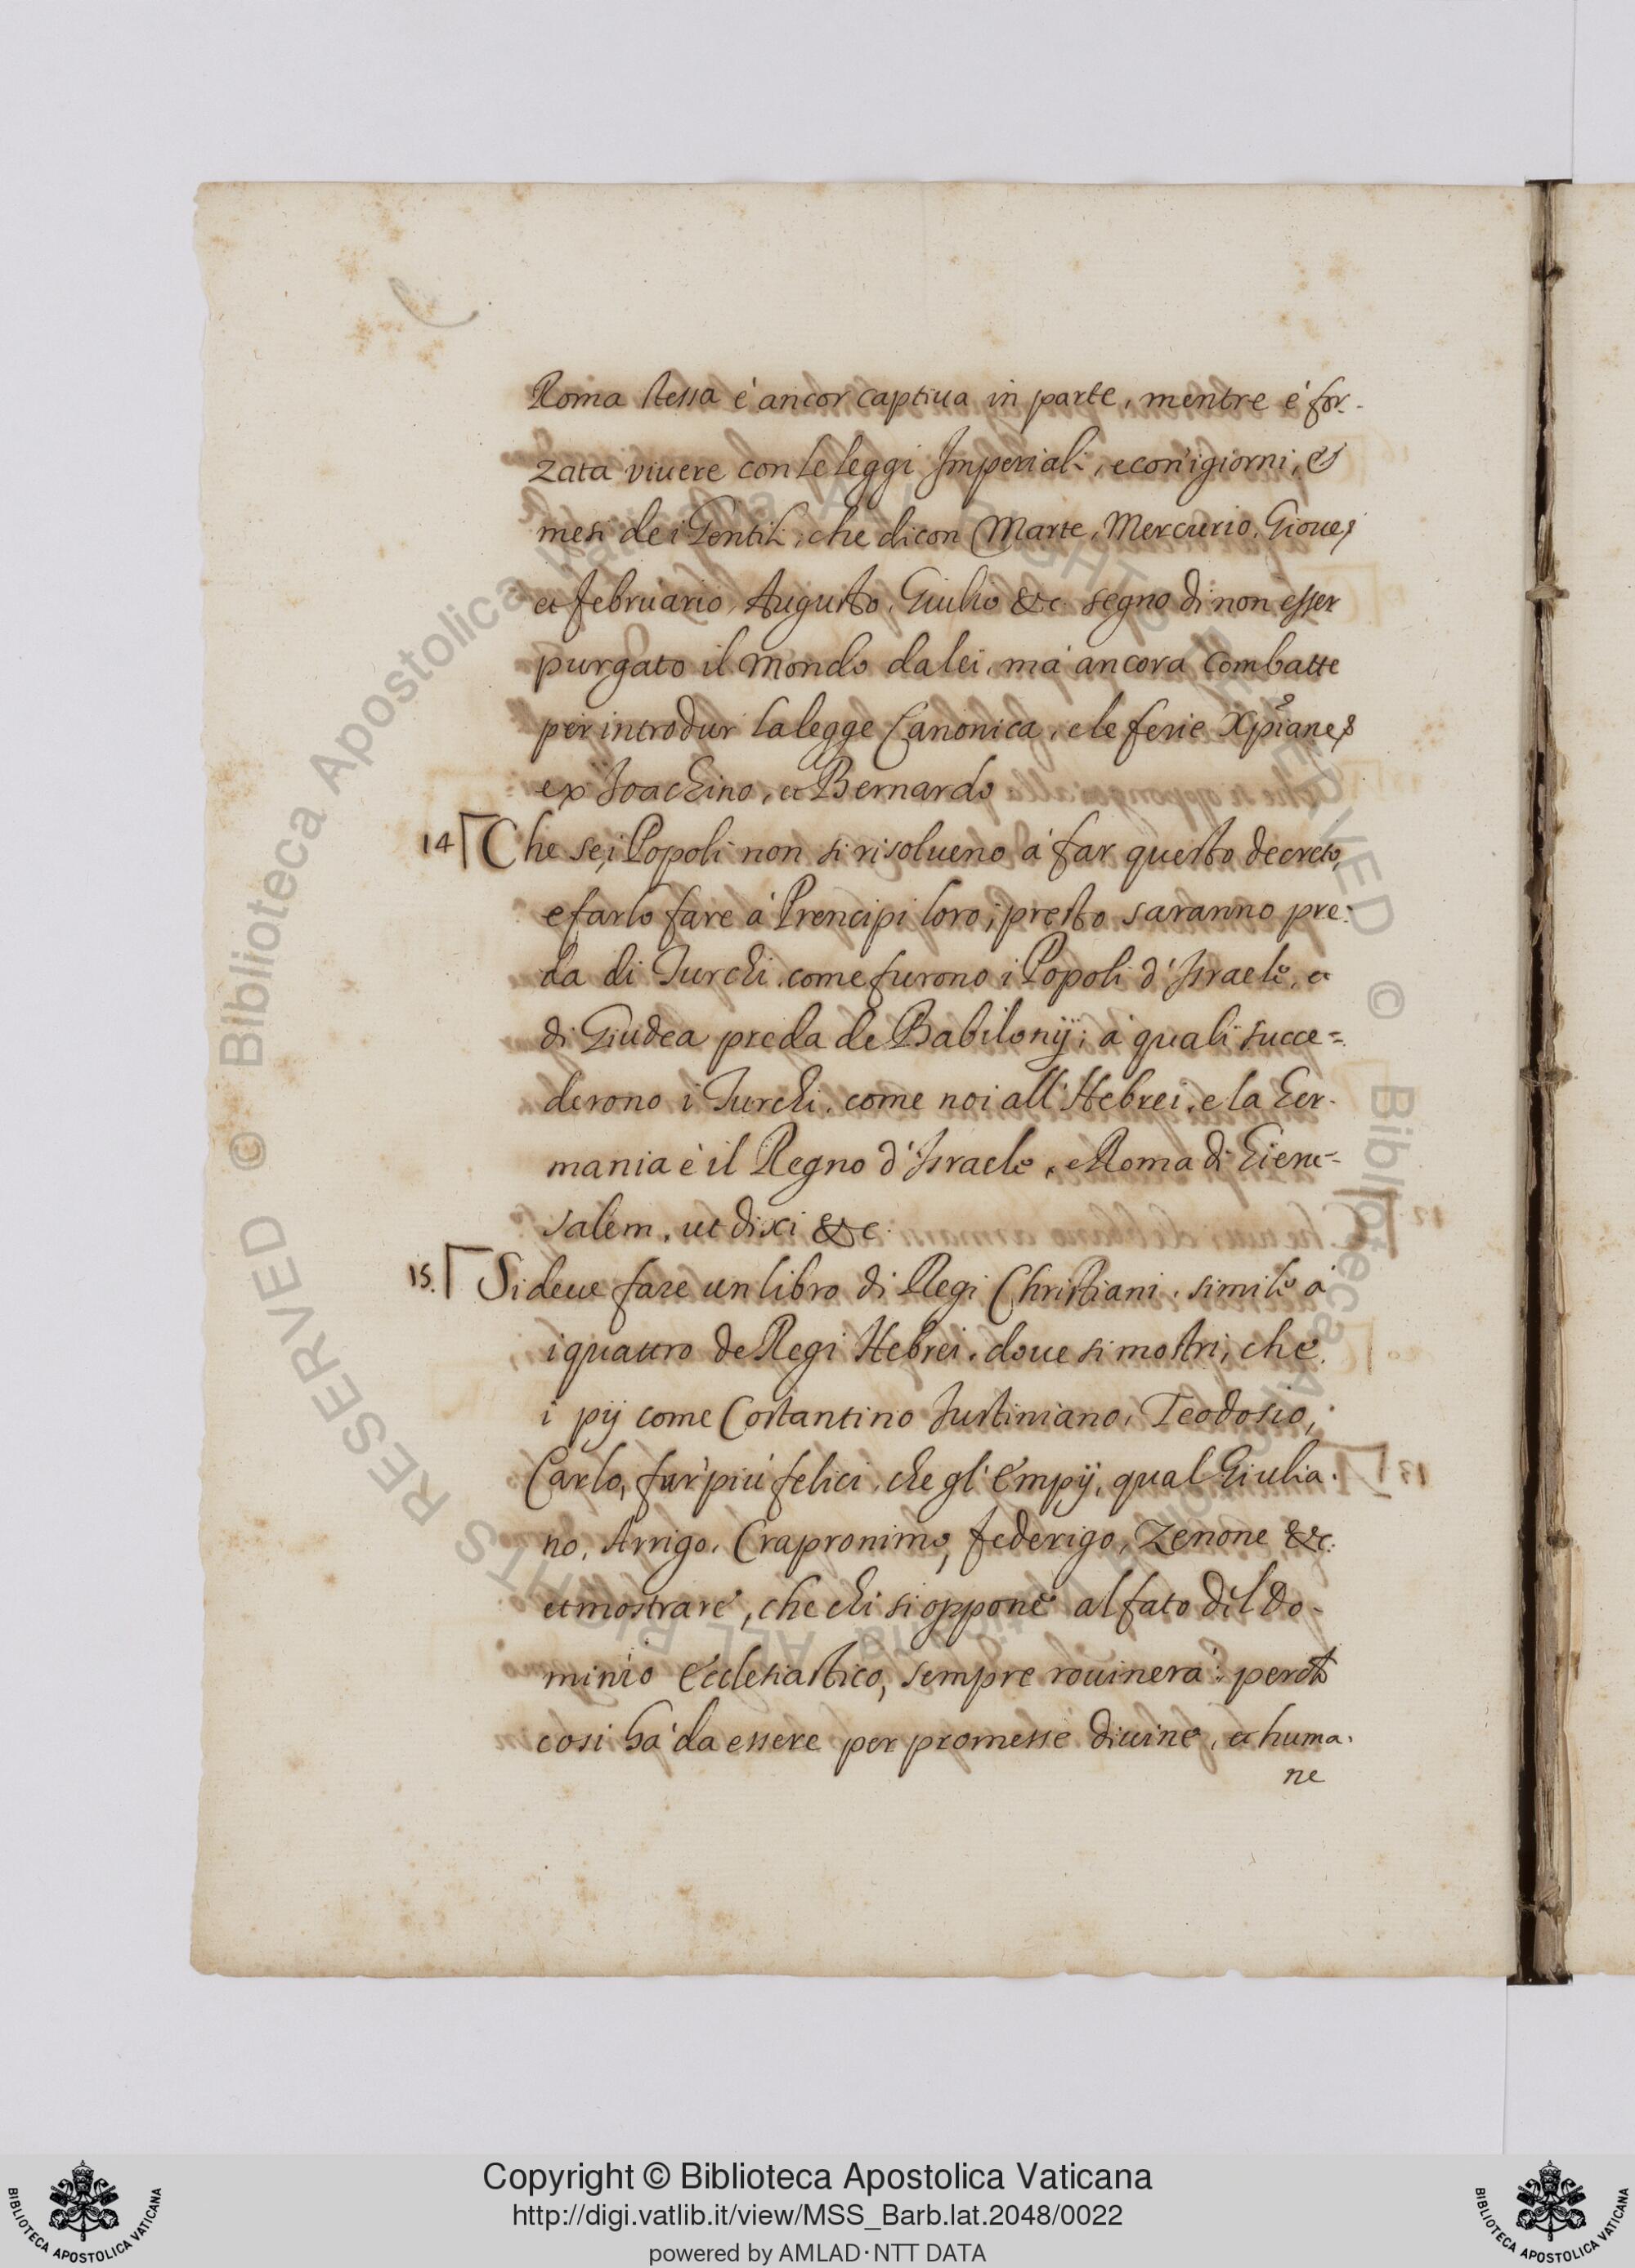 Roma stessa è ancor captiua in parte, mentre è for-
zata viuere con le leggi Imperiali, e con i giorni, et
mesi dei Gentili, che dicon Marte, Mercurio, Gioue,
et februario, Augusto, Giulio &c. segno di non esser
purgato il Mondo da lei, mà ancora Combatte
per introdur la legge Canonica, e le ferie Xp̃iane,
ex Joachino, et Bernardo
14 Che se i Popoli non si risolueno à far questo decreto,
e farlo fare à Prencipi loro; presto saranno pre-
da di Turchi, come furono i Popoli d'Israele, et
di Giudea preda de Babilonij; à quali succe=
derono i Turchi, come noi all'Hebrei, e la Ger-
mania è il Regno d'Israele, e Roma di Gieru=
salem, ut dixi &c.
15. Si deue fare un libro di Regi Christiani, simile à
i quattro de Regi Hebrei, doue si mostri, che
i pij come Costantino Iustiniano, Teodosio,
Carlo, fur più felici, che gl'empij, qual Giulia-
no, Arrigo, Crapronimo, federigo, Zenone &c.
et mostrare, che chi si oppone al fato del Do-
minio Ecclesiastico, sempre rouinerà:
cosi hà da essere per promesse diuine, et huma-
ne
© Biblioteca Apostolica Vaticana ALL RIGHTS RESERVED
© Biblioteca Apostolica Vaticana ALL RIGHTS RESERVED
Copyright © Biblioteca Apostolica Vaticana
http://digi.vatlib.it/view/MSS_Barb.lat.2048/0022
powered by AMLAD·NTT DATA
BIBLIOTECA APOSTOLICA VATICANA
BIBLIOTECA APOSTOLICA VATICANA